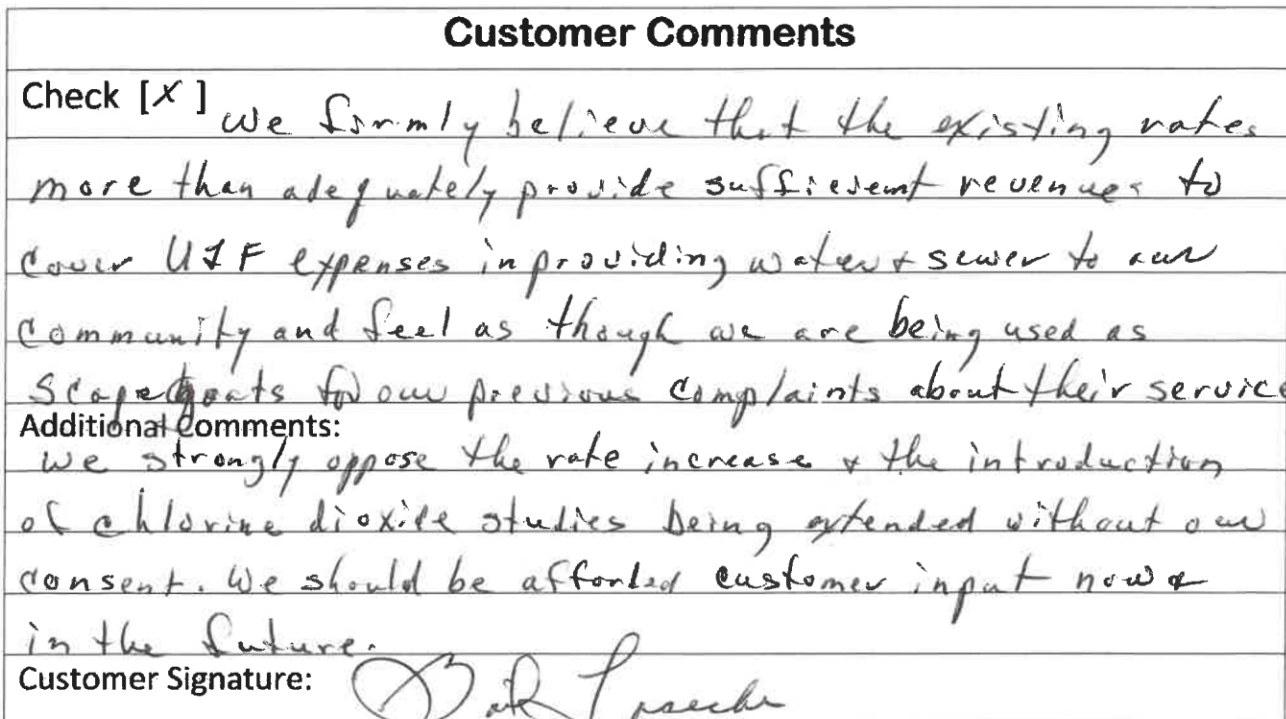 Customer Comments
Check [X] We firmly believe that the existing rates
more than adequately provide sufficient revenues to
cover UIF expenses in providing water & sewer to our
Community and feel as though we are being used as
Scapegoats for our previous complaints about their service
Additional Comments:
We strongly oppose the rate increase & the introduction
of chlorine dioxide studies being extended without our
consent. We should be afforded customer input now &
in the future.
Customer Signature: